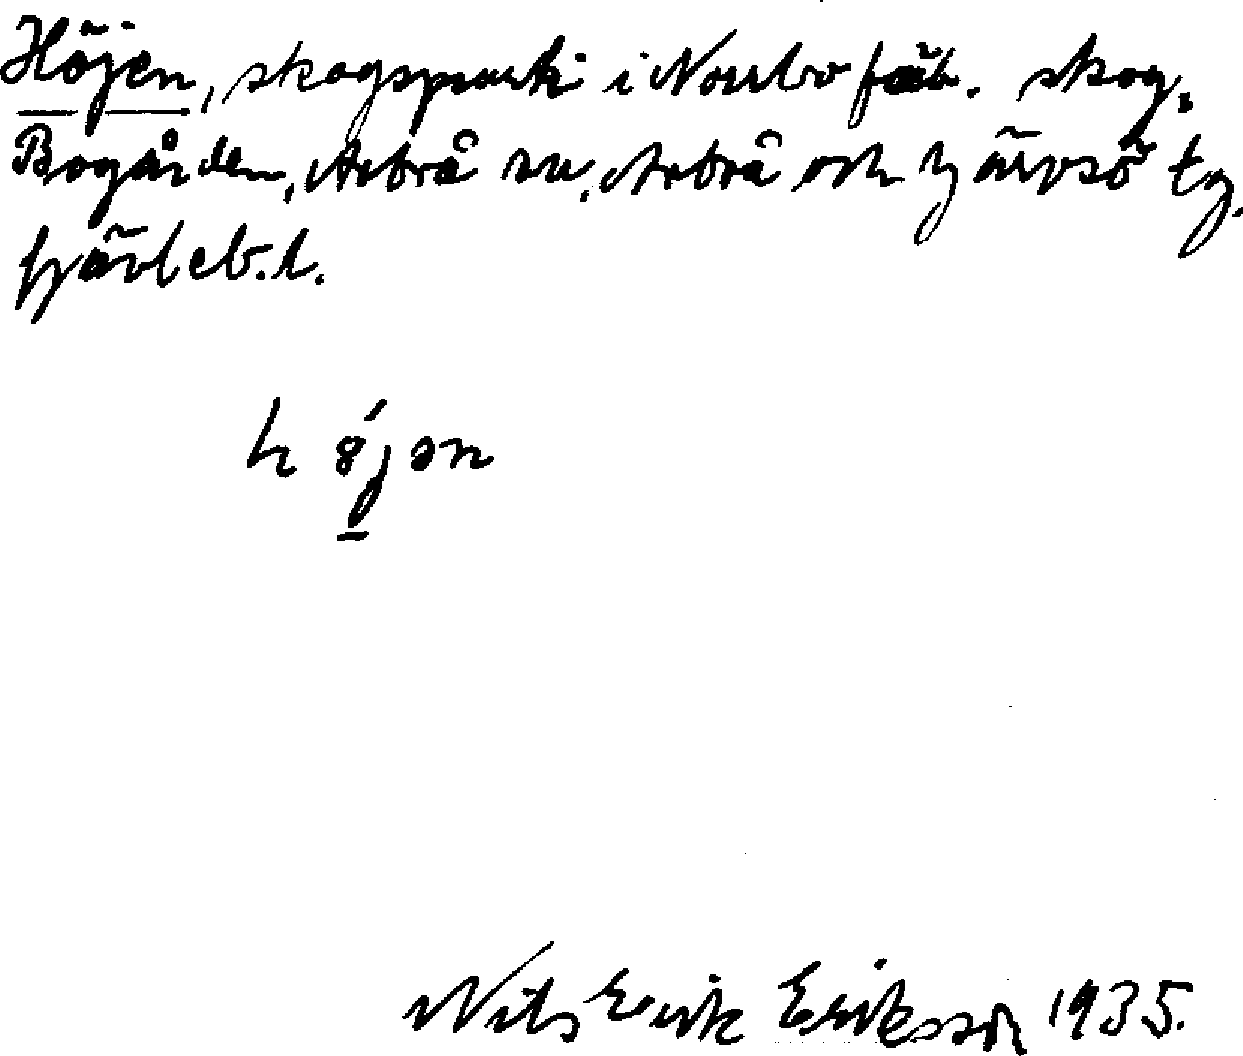 Höjen, skogspark i Norrbo fäb. skog,
Bogården, Arbrå sn, Arbrå och Järvsö tg,
Gävleb. l.
höjən
Nils Erik Eriksson 1935.